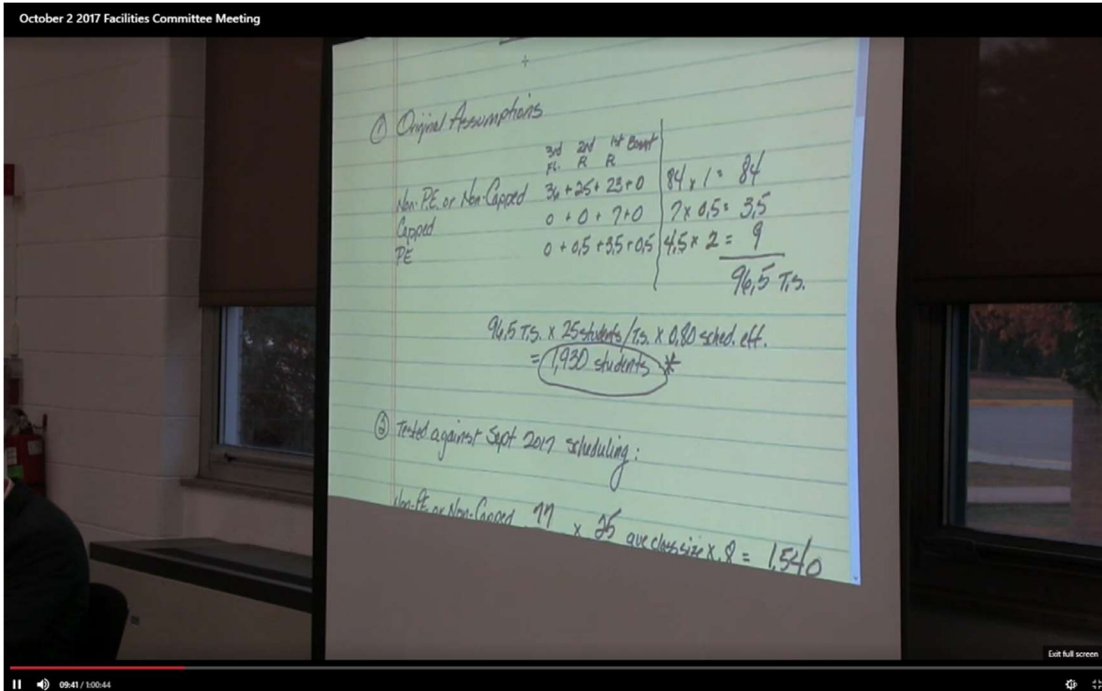 October 2 2017 Facilities Committee Meeting
① Original Assumptions
3rd 2nd 1st Bsmt
Fl. Fl Fl
Non-P.E. or Non-Capped 36 + 25 + 23 + 0 84 x 1 = 84
Capped 0 + 0 + 7 + 0 7 x 0,5 = 3,5
PE 0 + 0,5 + 3,5 + 0,5 4,5 x 2 = 9
96,5 T.S.
96,5 T.S. x 25 students/T.S. x 0,80 sched. eff.
= 1,930 students *
② Tested against Sept 2017 scheduling:
Non-P.E. or Non-Capped 77 x 25 ave class size x .8 = 1,540
Exit full screen
09:41 / 1:00:44